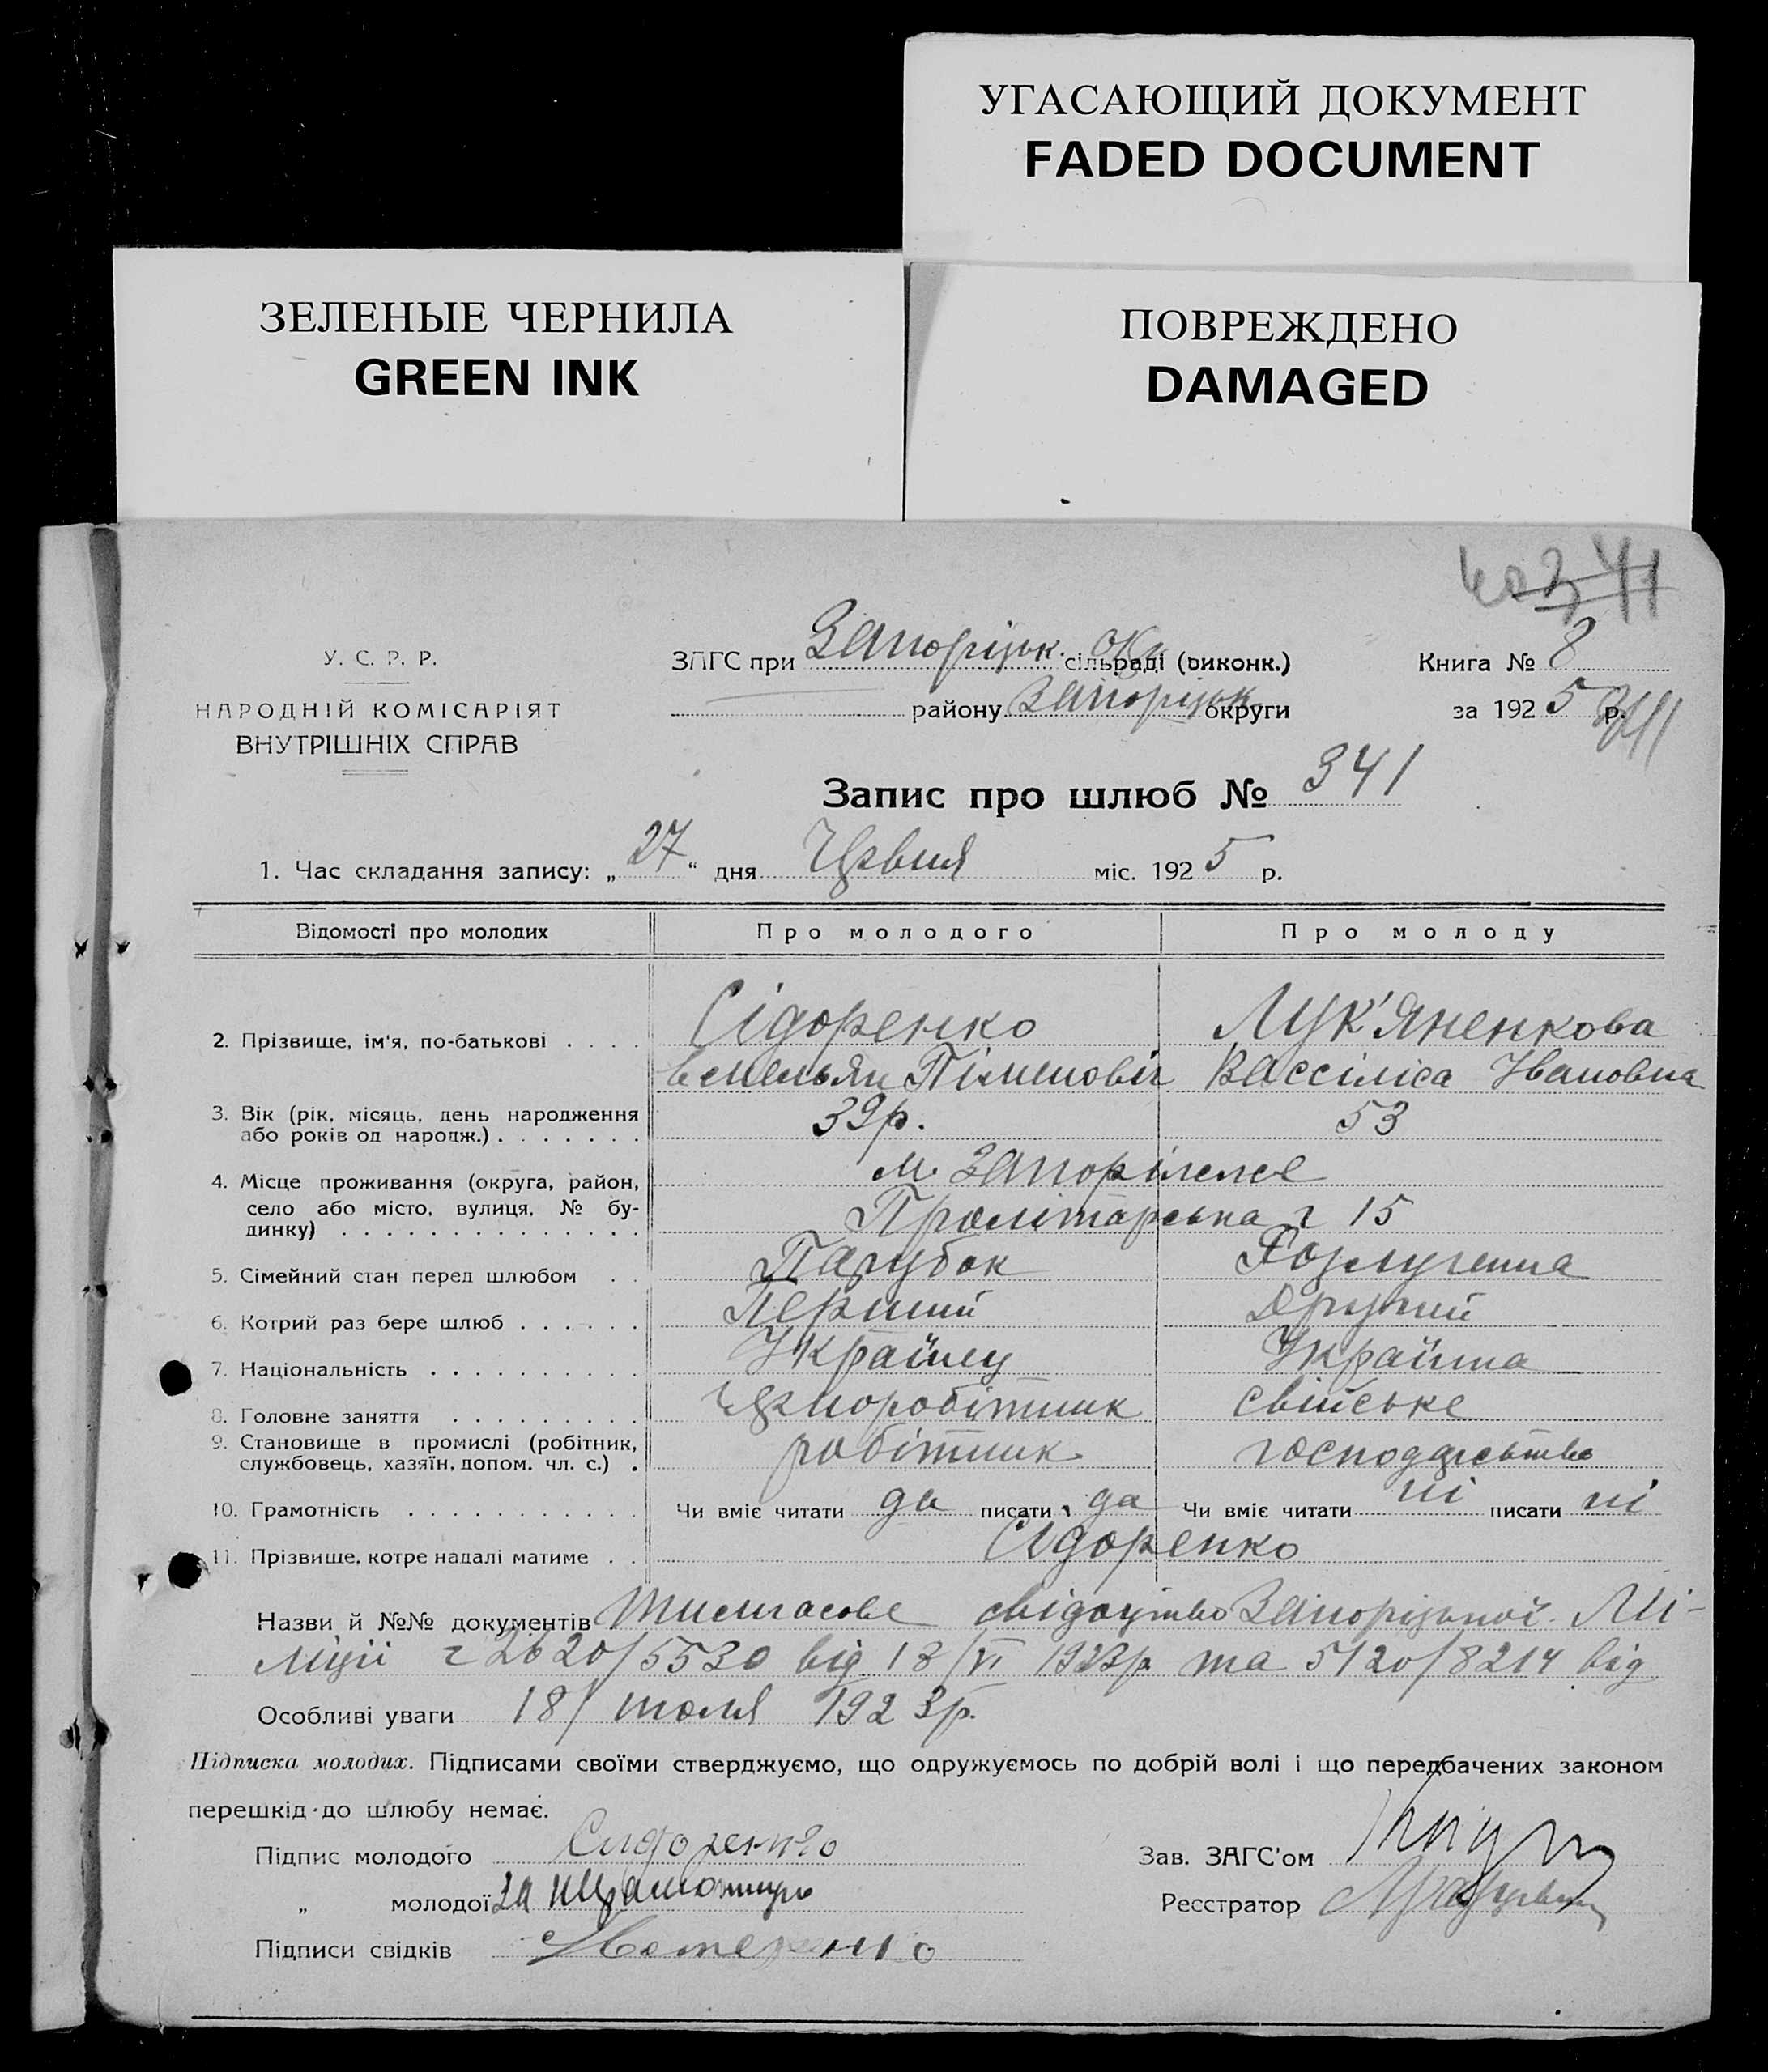 УГАСАЮЩИЙ ДОКУМЕНТ
FADED DOCUMENT
ЗЕЛЕНЫЕ ЧЕРНИЛА
GREEN INK
ПОВРЕЖДЕНО
DAMAGED
У. С. Р. Р.
НАРОДНІЙ КОМІСАРІЯТ
ВНУТРІШНІХ СПРАВ
ЗАГС при Запорізьк. Окр. сільраді (виконк.)
Книга № 8
району Запорізьк. округи
за 1925 р.
Запис про шлюб № 341
1. Час складання запису: „27“ дня Червня міс. 1925 р.
Відомості про молодих Про молодого Про молоду
2. Прізвище, ім'я, по-батькові . . . . Сідоренко Лук'яненкова
Вемельян Піменовіч Вассіліса Івановна
3. Вік (рік, місяць, день народження
або років од народж.) . . . . . . . 39р. 53
4. Місце проживання (округа, район,
село або місто, вулиця, № бу-
динку) . . . . . . . . . . . . . .
м. Запоріжже
Пролітарська ч 15
5. Сімейний стан перед шлюбом . . Парубок Розлучена
6. Котрий раз бере шлюб . . . . . . Перший Другий
7. Національність . . . . . . . . . . Українц Українка
8. Головне заняття . . . . . . . . . Чорноробітник свійське
9. Становище в промислі (робітник,
службовець, хазяїн, допом. чл. с.) . робітник господарство
10. Грамотність . . . . . . . . . . . Чи вміє читати да писати да Чи вміє читати ні писати ні
11. Прізвище, котре надалі матиме . . Сідоренко
Назви й №№ документів Тимчасове свідоцтво Запорізької Мі-
ліції ч 2620/5530 від 18/VI 1923р та 5120/8214 від
Особливі уваги 18/ июля 1923р.
Підписка молодих. Підписами своїми стверджуємо, що одружуємось по добрій волі і що передбачених законом
перешкід до шлюбу немає.
Підпис молодого Сидоренко
Зав. ЗАГС'ом
„ молодої за неграмотную
Реєстратор
Підписи свідків